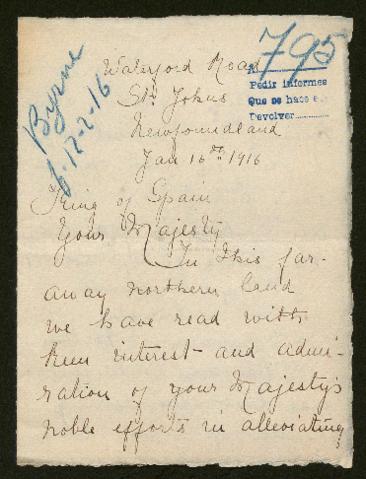 795
A
Pedir informes
Que se hace
Devolver
Byrne
12-2-16
Waterford Road
St Johns
Newfoundland
Jan 16th 1916
King of Spain
Your Majesty
In this far-
away northern land
we have read with
keen interest and admi-
ration of your Majesty's
noble efforts in alleviating